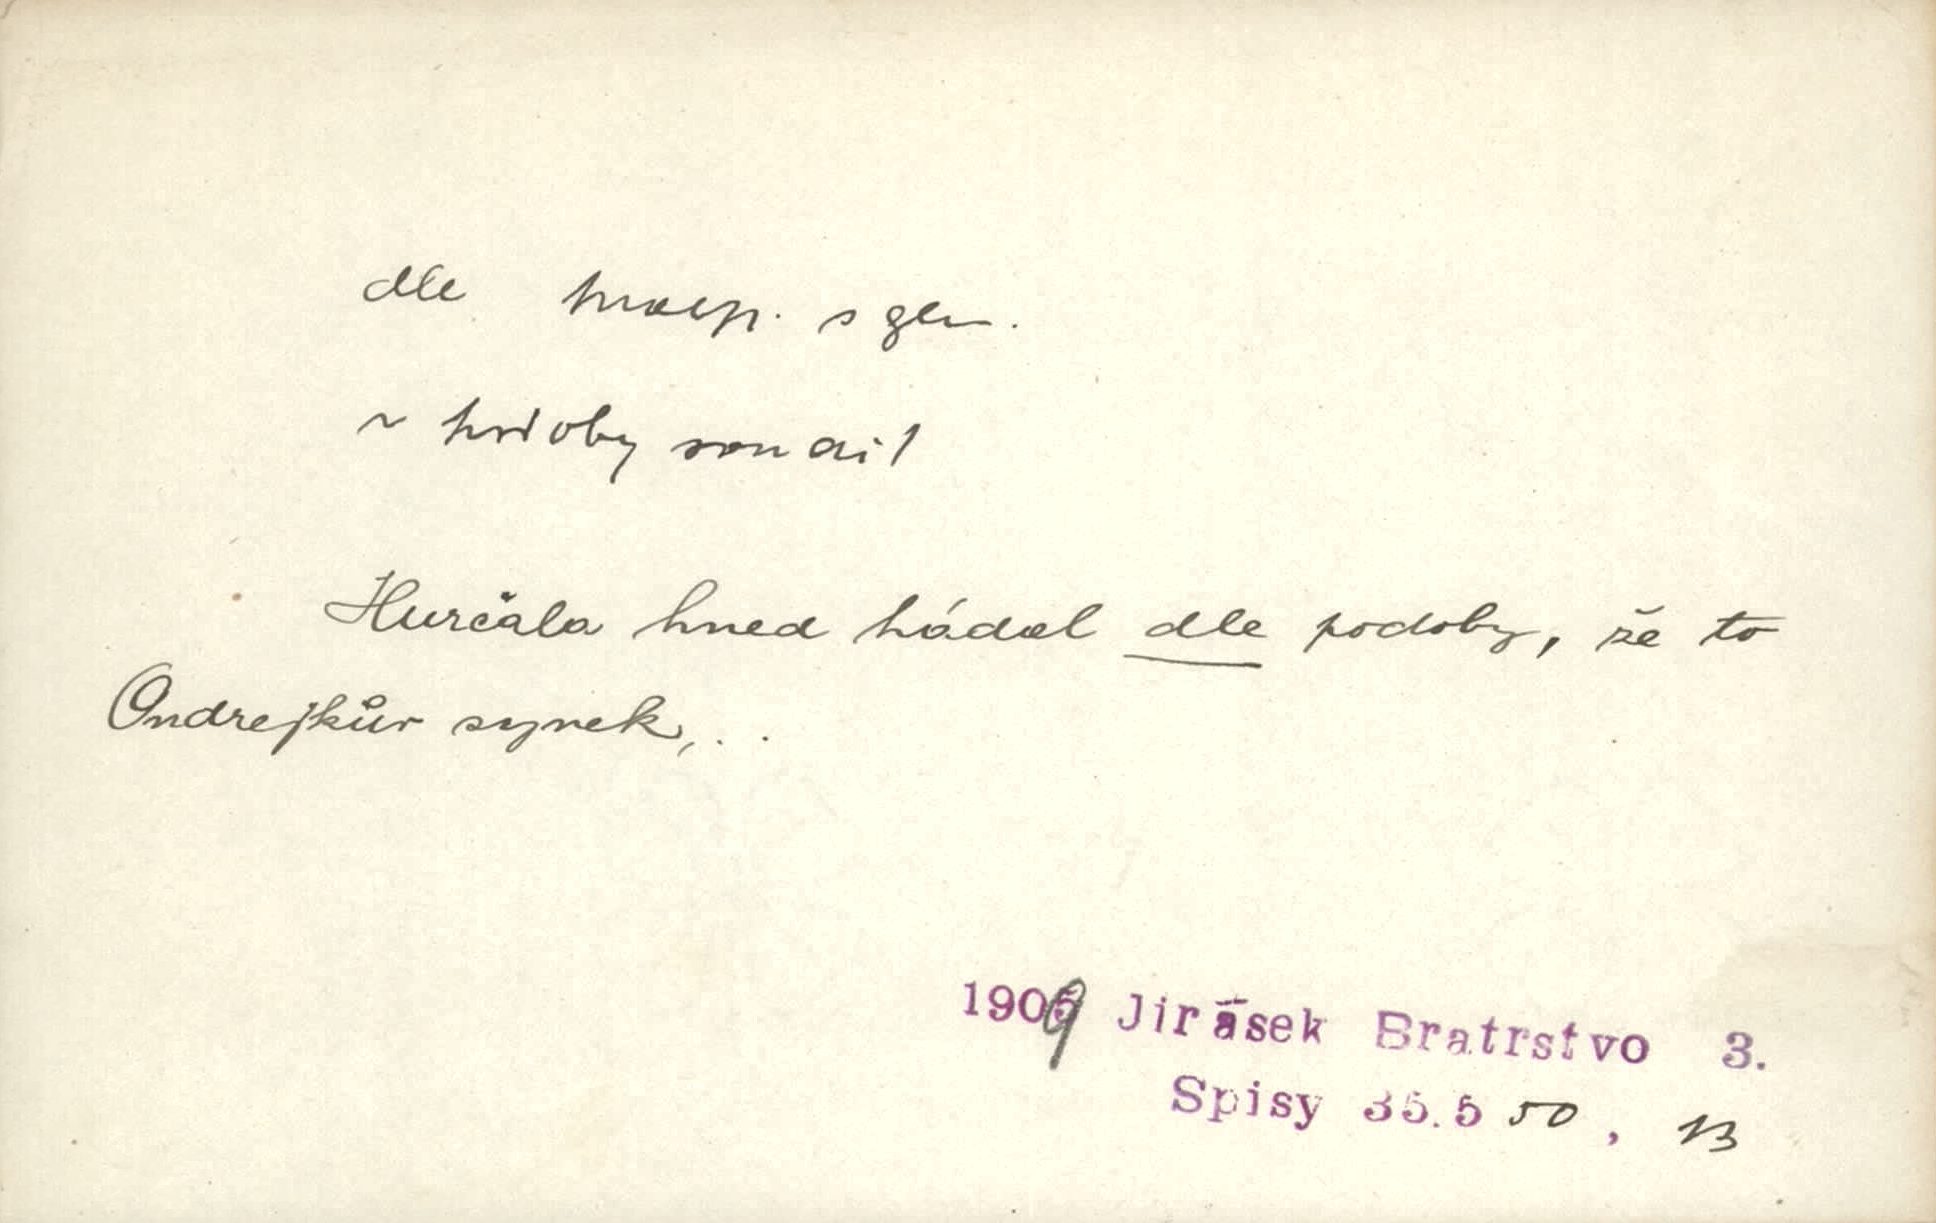 dle praep. s gen.
Hurčala hned hádal dle podoby, že to
Ondrejkův synek,..
1909 Jirásek Bratrstvo 3.
Spisy 35.5 50, 13